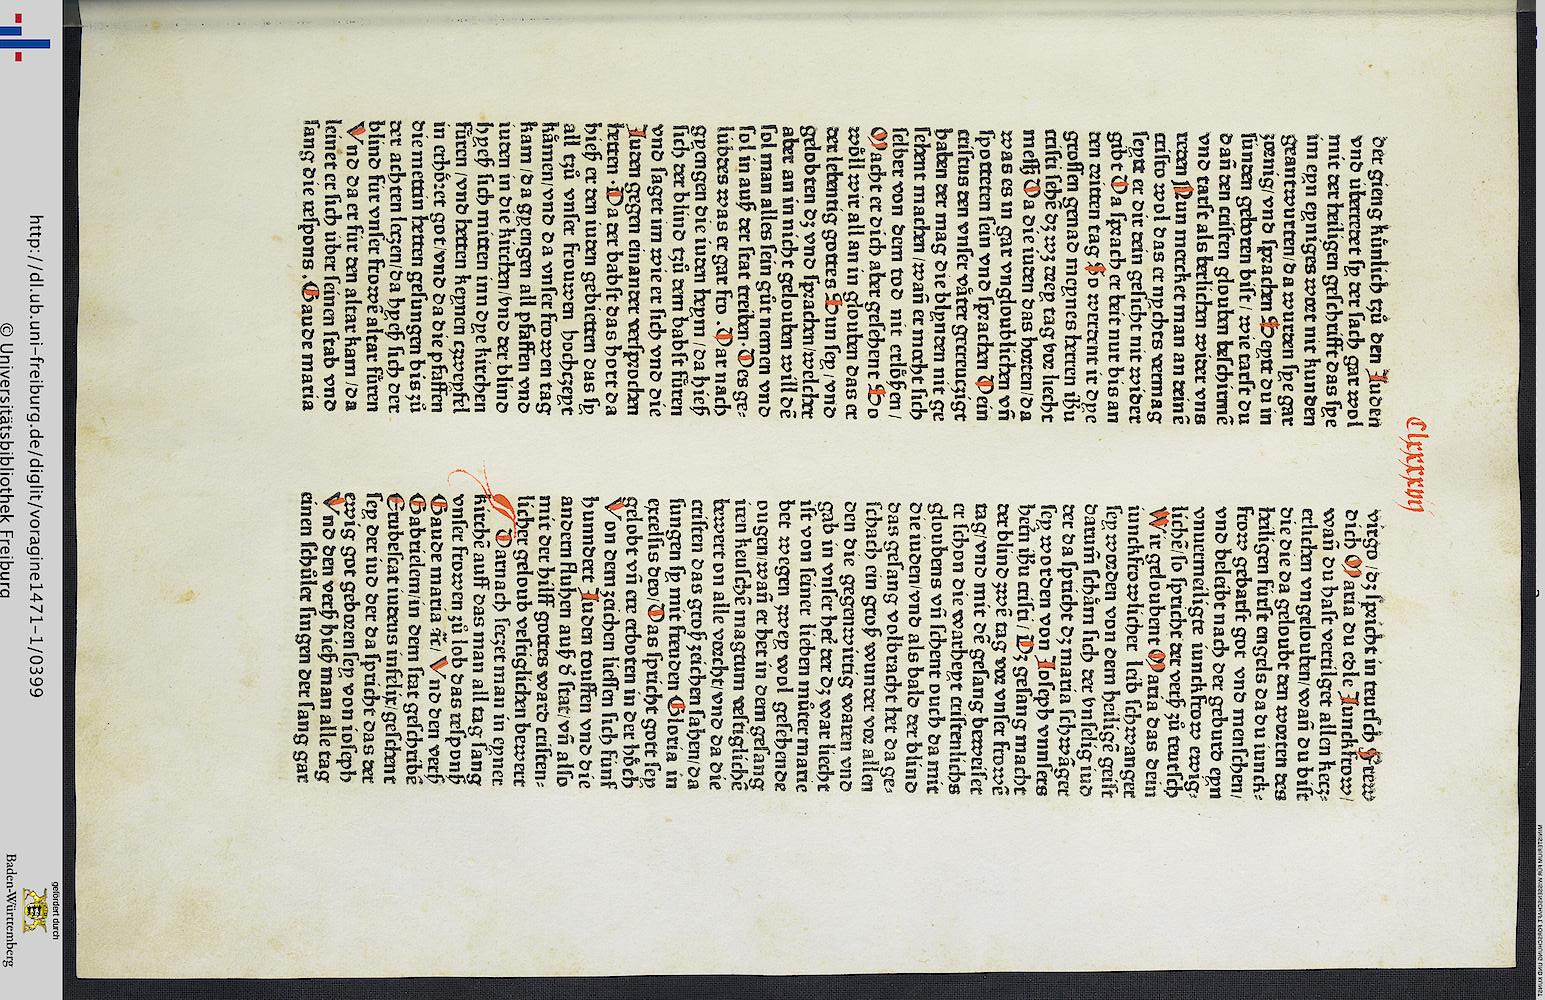 Clxxxxvij
der gieng künlich zů den Juden
vnd überredet sy der sach gar wol
mit der heiligen geschrifft das sye
im eyn eyniges wort nit kunden
geantwurten / da wurden sye gar
zornig / vnd sprachen Seytt du in
sünden geboren bist / wie tarst du
dañ den cristen glouben beschirmē
vnd tarst als berlichen wider vns
reden Nun mercket man an deinē
cristo wol das er nychcs vermag
seytt er dir dein gesicht nit wider
gibt Da sprach er beit nur bis an
den driten tag So verdient ir dye
grossen genad meynes herren ihū
cristi sehē dz wz drey tag vor liecht
meß Da die iuden das horten / da
was es in gar vngloublichen vñ
spotteten sein vnd sprachen Dein
cristus den vnser våter gecreuczigt
haben der mag die blynden nit ge
sehent machen / wañ er mocht sich
selber von dem tod nit erlößen /
Macht er dich aber gesehent So
wöll wir all an in glouben das er
der lebentig gottes Sun sey / vnd
gelobten dz vnd sprachen / welcher
aber an in nicht gelouben will dē
sol man alles sein gůt nemen vnd
sol in auß der stat treiben · Des ge=
lübdes was er gar fro . Dar nach
gyengen die iuden heym / da hieß
sich der blind tzů dem babst füren
vnd saget im wie er sich vnd die
Juden gegen einander versprochen
hetten . Da der babst das hort da
hieß er den iuden gebietten das sy
all tzů vnser frouwen hochczeyt
kåmen / vnd da vnser frowen tag
kam / da gyengen all pfaffen vnd
iuden in die kirchen / vnd der blind
hyeß sich mitten inn dye kirchen
füren / vnd hetten keynen czweyfel
in erhöret got / vnd da die pfaffen
die mettin hetten gesungen bis zů
der achten leczen / da hyeß sich der
blind für vnser frowē altar füren
Vnd da er für den altar kam / da
leinet er sich über seinen stab vnd
sang die respons . Gaude maria
virgo / dz spricht in teutsch Frew
dich Maria du edle Junckfrow /
wañ du hast vertilget allen kecz=
erlichen vngelouben / wañ du bist
die die da geloubt den worten des
heiligen fürst engels da du iunck=
frow gebarst got vnd menschen /
vnd beleibt nach der geburd eyn
vnuermeiligte iunckfrow ewig=
lichē / so spricht der verß zů teutsch
Wir geloubent Maria das dein
iunckfrowlicher leib schwanger
sey worden von dem heiligē geist
darum̄ schåm sich der vnselig iud
der da spricht dz maria schwåger
sey worden von Joseph vnnsers
herrē ihū cristi / Dz gesang macht
der blind zwē tag vor vnser frowē
tag / vnd mit dē gesang beweiset
er schon die warheyt cristenlichs
gloubens vñ schent ouch da mit
die iuden / vnd als bald der blind
das gesang volbracht het da ge=
schach ein groß wunder vor allen
den die gegenwirtig waren vnd
gab in vnser her der dz war liecht
ist von seiner lieben můter marie
bet wegen zwey wol gesehende
ougen / wañ er het in dem gesang
iren keuschē magtum vestiglichē
bewert on alle vorcht / vnd da die
cristen das groß zeichen sahen / da
sungen sy mit freuden Gloria in
excelsis deo / Das spricht gott sey
gelobt vñ ere erboten in der höch
Von dem zeichen liessen sich fünf
hunndert Juden touffen vnd die
andern fluhen auß d' stat / vñ also
mit der hilff gottes ward cristen=
licher geloub vestiglichen bewert
Darnach seczet man in eyner
kirchē auff das man all tag sang
vnser frowen zů lob das responß
Gaude maria ꝛc̄ / Vnd den verß
Gabrielem / in dem stat geschribē
Erubescat iudeus infelix / geschent
sey der iud der da spricht das der
ewig got geboren sey von ioseph
Vnd den verß hieß man alle tag
einen schůler singen der sang gar
http://dl.ub.uni-freiburg.de/diglit/voragine1471-1/0399
© Universitätsbibliothek Freiburg
gefördert durch
Baden-Württemberg